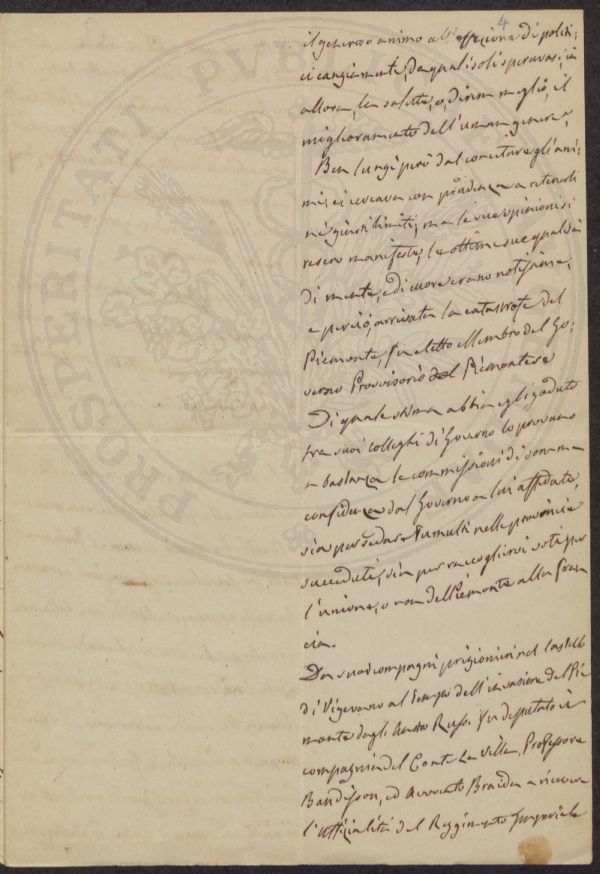 4
il generoso animo all' affezione di politi:
ci cangiamenti, da quali soli speravasi in
allora, la salute, o, direm meglio, il
miglioramento dell' uman genere.
Ben lungi però dal concitare gl' ani:
mi, ei cercava con prudenza a ritenerli
ne' giusti limiti; ma le sue opinioni si
resero manifeste, le ottime sue qualità
di mente, e di cuore erano notissime,
e perciò, arrivata la catastrofe del
Piemonte, fu eletto Membro del Go:
verno Provvisorio del Piemontese
Di quale stima abbia egli goduto
tra suoi colleghi di Governo lo provano
a bastanza le commissioni di somma
confidenza dal Governo a lui affidate,
sia per sedare tumulti nelle provincie
succeduti, sia per raccogliervi voti per
l'unione, o non del Piemonte alla Fran
cia.
Da suoi compagni prigionieri nel Castello
di Vigevano al tempo dell' invasione del Pie
monte dagli Austro Russi fu deputato in
compagnia del Conte La Villa, Professore
ed Avvocato Braida a ricevere
l'uffizialità del Reggimento Imperiale
PROSPERITATI PVBLI